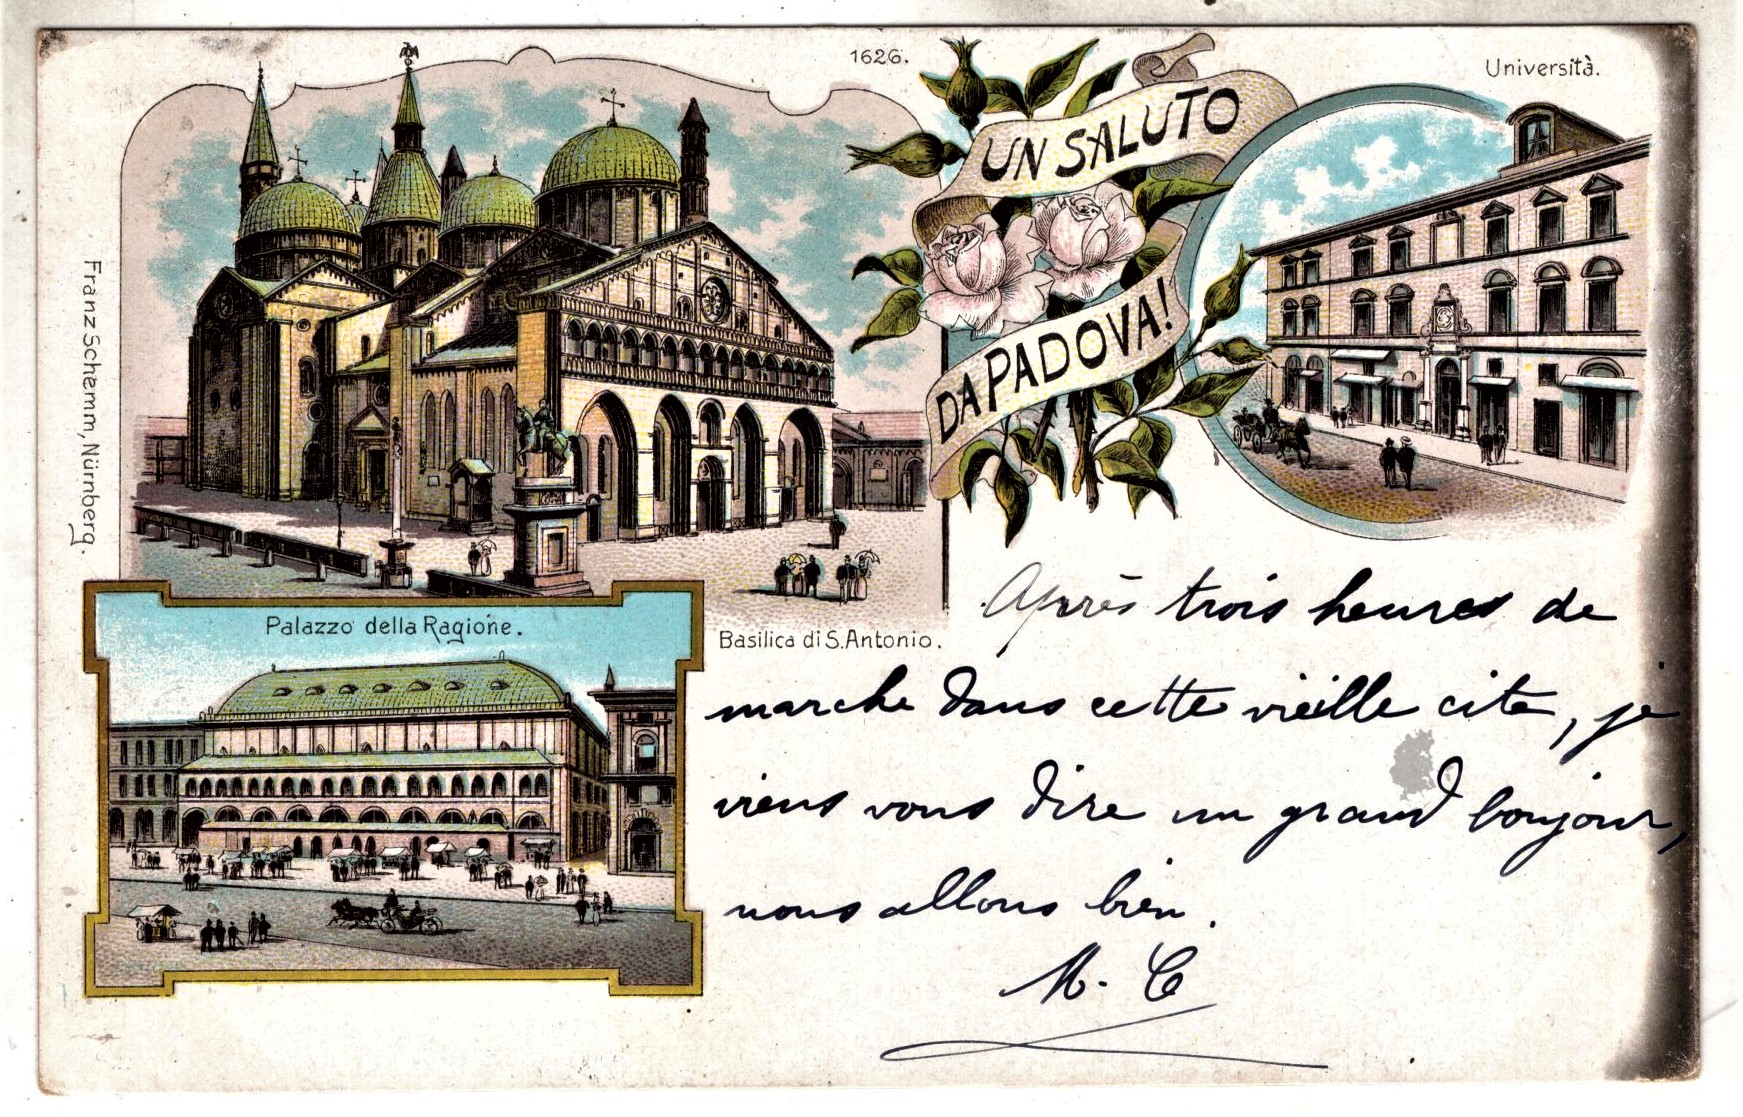 1626.
Università.
UN SALUTO
DA PADOVA!
Franz Schemm, Nürnberg.
Palazzo della Ragione.
Basilica di S. Antonio.
Après trois heures de
marche dans cette vieille cité, je
viens vous dire un grand bonjour,
nous allons bien.
M. C